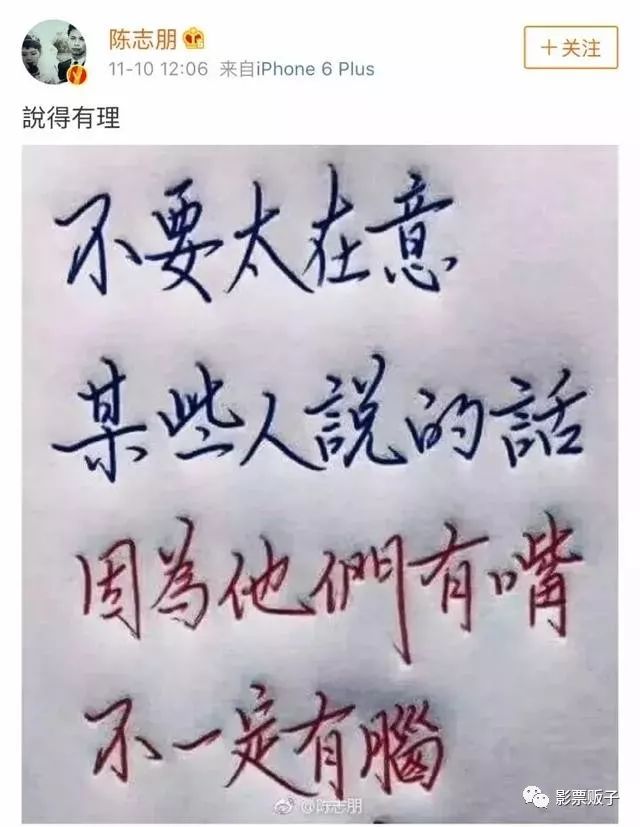 陈志朋
11-10 12:06 来自iPhone 6 Plus
+关注
說得有理
不要太在意
某些人説的話
因為他們有嘴
不一定有腦
@陈志朋
影票贩子